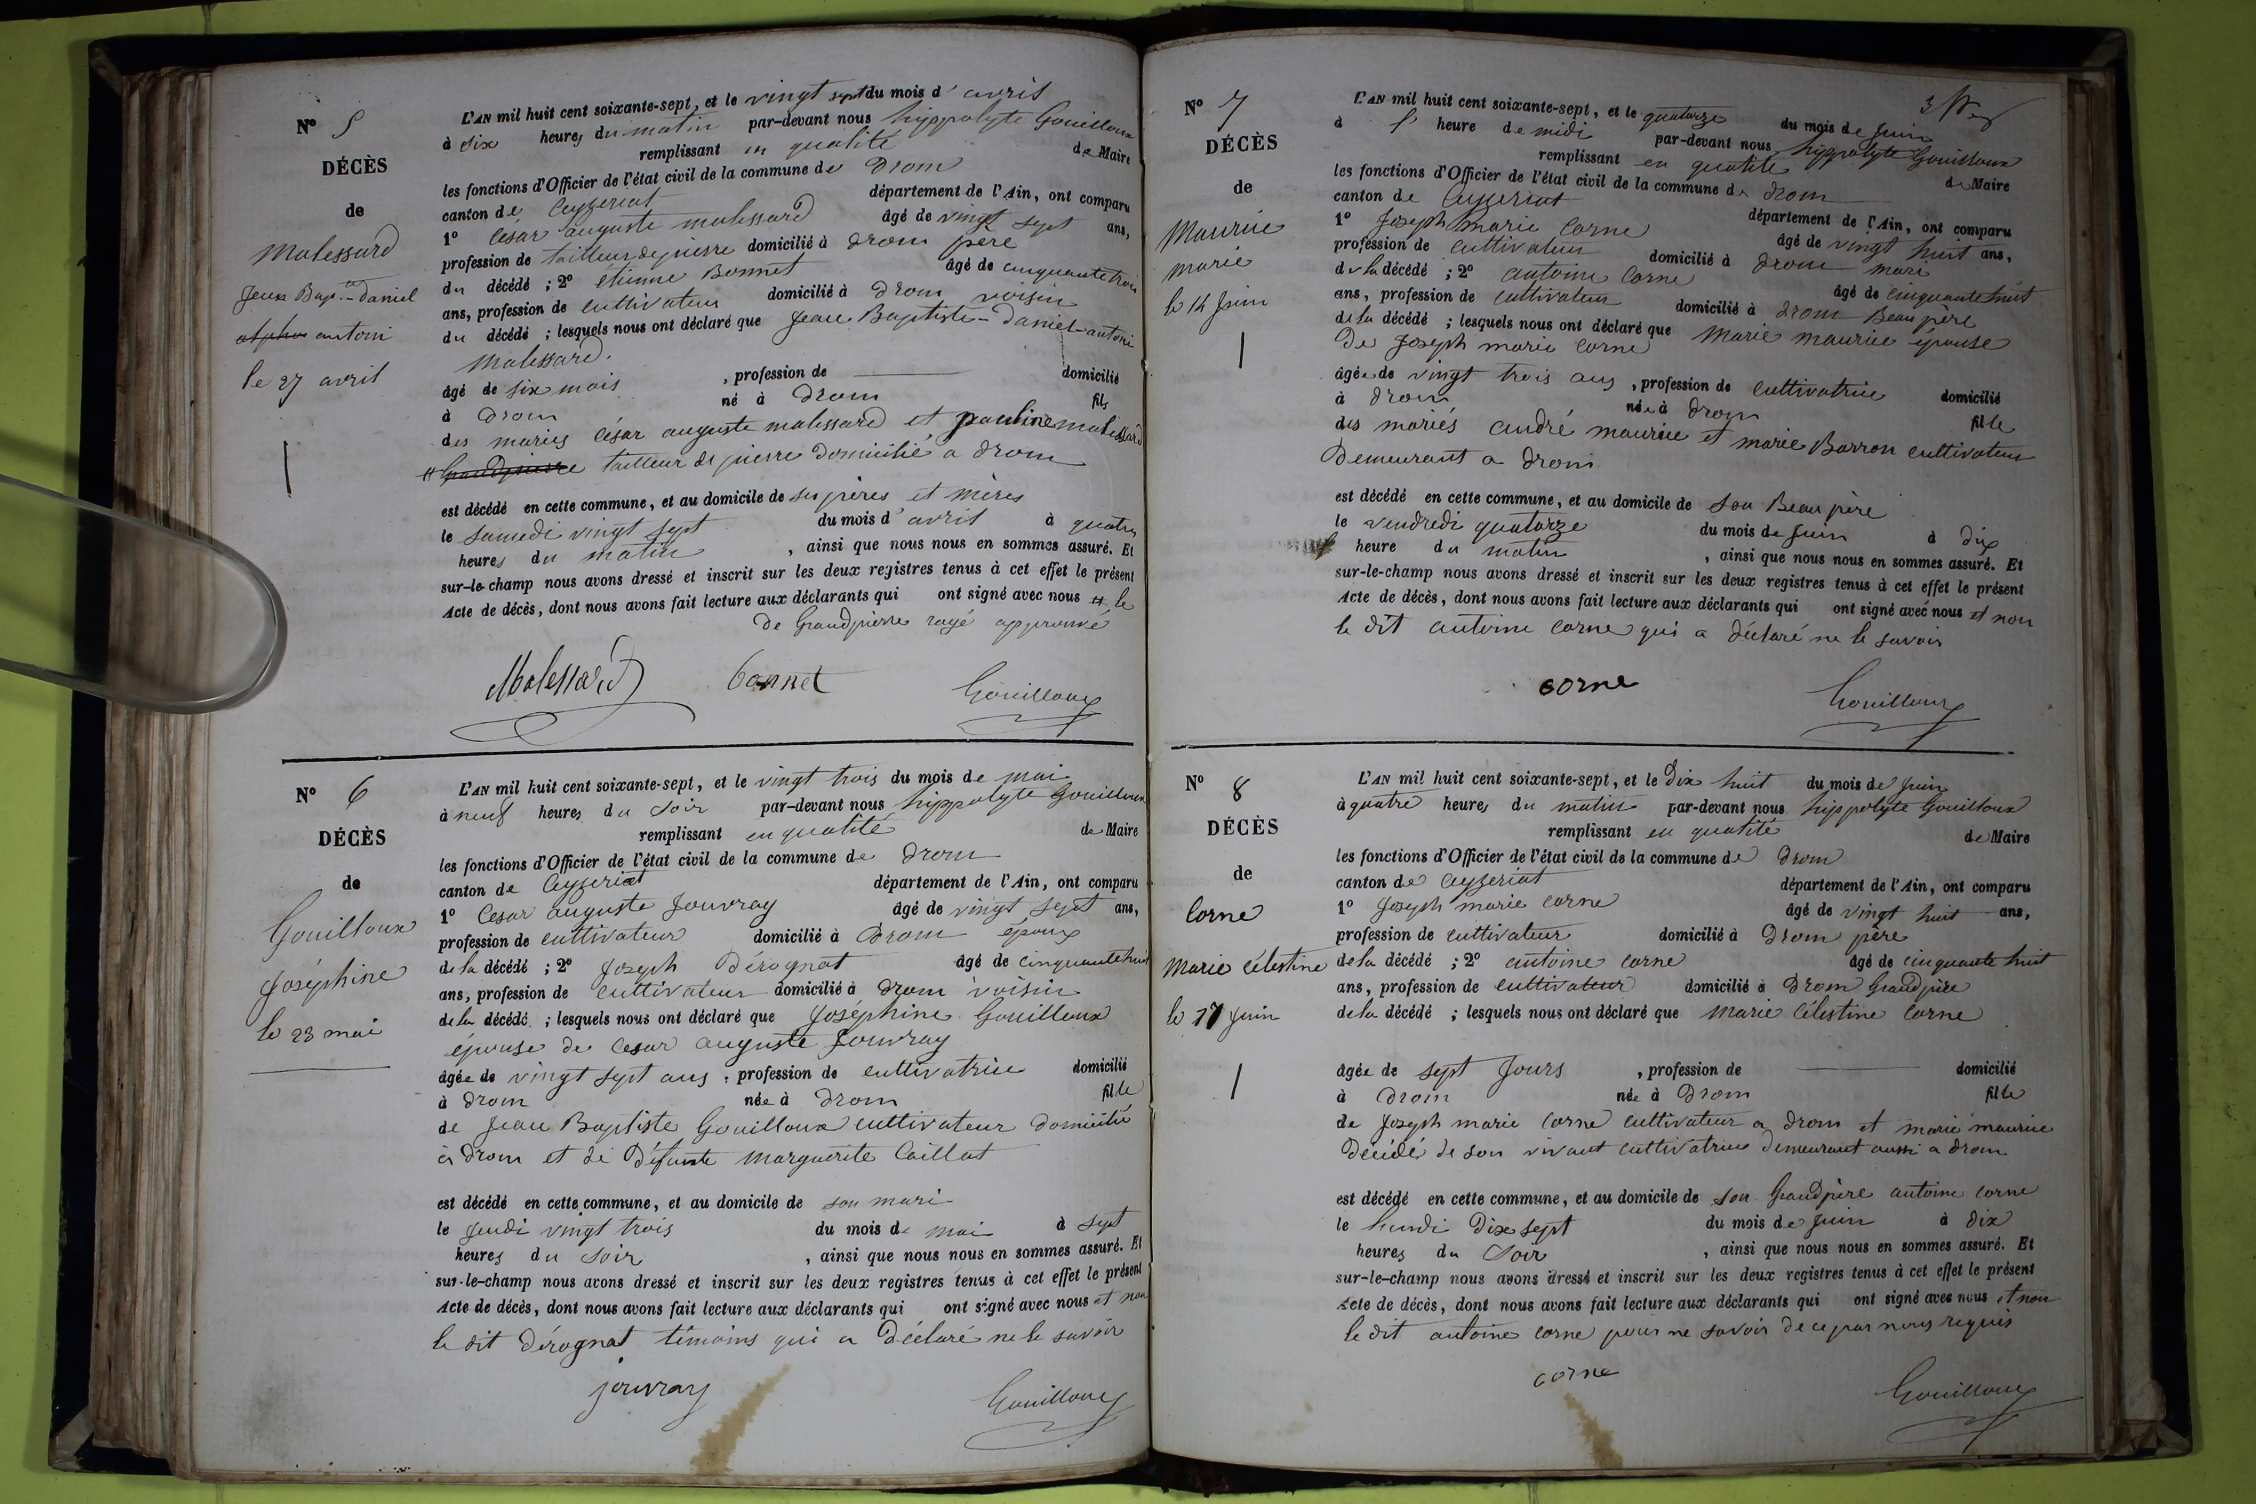 N° 5
DÉCÈS
de
Malessard
Jean Bap.te Daniel
antoni
le 27 avril
L'AN mil huit cent soixante-sept, et le vingt sept du mois d'avril
à six heures du matin par-devant nous hyppolyte Gouilloux
remplissant en qualité de Maire
les fonctions d'Officier de l'état civil de la commune de Drom
canton de Ceyzeriat département de l'Ain, ont comparu
1° César auguste malessard âgé de vingt sept ans,
profession de tailleur de pierre domicilié à Drom père
du décédé ; 2° étienne Bonnet âgé de cinquante trois
ans, profession de cultivateur domicilié à Drom voisin
du décédé ; lesquels nous ont déclaré que Jean Baptiste-Daniel-antoni
Malessard.
âgé de six mois , profession de domicilié
à Drom né à Drom fils
des mariés César auguste malessard et pauline malessard
# Grandpierre tailleur de pierre Domicilié a Drom
est décédé en cette commune, et au domicile de ses pères et mères
le samedi vingt sept du mois d'avril à quatre
heures du matin , ainsi que nous nous en sommes assuré. Et
sur-le-champ nous avons dressé et inscrit sur les deux registres tenus à cet effet le présent
Acte de décès, dont nous avons fait lecture aux déclarants qui ont signé avec nous # le
de Grandpierre rayé approuvé
Malessard bonnet Gouilloux
N° 6
DÉCÈS
de
Gouilloux
Joséphine
le 23 mai
L'AN mil huit cent soixante-sept, et le vingt trois du mois de mai
à neuf heures du soir par-devant nous hyppolyte Gouilloux
remplissant en qualité de Maire
les fonctions d'Officier de l'état civil de la commune de Drom
canton de Ceyzeriat département de l'Ain, ont comparu
1° Cesar auguste Jouvray âgé de vingt sept ans,
profession de cultivateur domicilié à Drom époux
de la décédé ; 2° Joseph Dérognat âgé de cinquante huit
ans, profession de cultivateur domicilié à Drom voisin
de la décédé ; lesquels nous ont déclaré que Joséphine Gouilloux
épouse de Cesar auguste Jouvray
âgée de vingt sept ans , profession de cultivatrice domicilié
à Drom née à Drom fille
de Jean Baptiste Gouilloux cultivateur Domicilié
à Drom et de Défunte Marguerite Caillat
est décédé en cette commune, et au domicile de son mari
le jeudi vingt trois du mois de mai à sept
heures du soir , ainsi que nous nous en sommes assuré. Et
sur-le-champ nous avons dressé et inscrit sur les deux registres tenus à cet effet le présent
Acte de décès, dont nous avons fait lecture aux déclarants qui ont signé avec nous et non
le dit Dérognat témoins qui a Déclaré ne le savoir
jouvray Gouilloux
N° 7
DÉCÈS
de
Maurice
marie
le 14 Juin
L'AN mil huit cent soixante-sept, et le quatorze du mois de Juin
à 1 heure de midi par-devant nous hyppolyte Gouilloux
remplissant en qualité de Maire
les fonctions d'Officier de l'état civil de la commune de Drom
canton de Ceyzeriat département de l'Ain, ont comparu
1° Joseph marie Corne âgé de vingt huit ans,
profession de cultivateur domicilié à Drom mari
de la décédé ; 2° antoine Corne âgé de cinquante huit
ans, profession de cultivateur domicilié à Drom Beau père
de la décédé ; lesquels nous ont déclaré que Marie maurice épouse
De Joseph marie corne
âgée de vingt trois ans , profession de cultivatrice domicilié
à Drom née à Drom fille
des mariés andré maurice et marie Barron cultivateur
Demeurant a Drom
est décédé en cette commune, et au domicile de son Beau père
le vendredi quatorze du mois de Juin à dix
heure du matin , ainsi que nous nous en sommes assuré. Et
sur-le-champ nous avons dressé et inscrit sur les deux registres tenus à cet effet le présent
Acte de décès, dont nous avons fait lecture aux déclarants qui ont signé avec nous et non
le dit antoine corne qui a déclaré ne le savoir
corne Gouilloux
N° 8
DÉCÈS
de
Corne
Marie Célestine
le 17 Juin
L'AN mil huit cent soixante-sept, et le Dix huit du mois de Juin
à quatre heures du matin par-devant nous hyppolyte Gouilloux
remplissant en qualité de Maire
les fonctions d'Officier de l'état civil de la commune de Drom
canton de Ceyzeriat département de l'Ain, ont comparu
1° Joseph marie corne âgé de vingt huit ans,
profession de cultivateur domicilié à Drom père
de la décédé ; 2° antoine corne âgé de cinquante huit
ans, profession de cultivateur domicilié à Drom Grandpère
de la décédé ; lesquels nous ont déclaré que Marie Célestine Corne
âgée de sept Jours , profession de domicilié
à Drom née à Drom fille
de Joseph marie Corne cultivateur a Drom et marie maurice
Décidé de son vivant cultivatrice Demeurant aussi a Drom
est décédé en cette commune, et au domicile de son Grandpère antoine corne
le lundi Dix sept du mois de Juin à dix
heures du soir , ainsi que nous nous en sommes assuré. Et
sur-le-champ nous avons dressé et inscrit sur les deux registres tenus à cet effet le présent
Acte de décès, dont nous avons fait lecture aux déclarants qui ont signé avec nous et non
le dit antoine corne pour ne savoir de ce par nous requis
corne Gouilloux